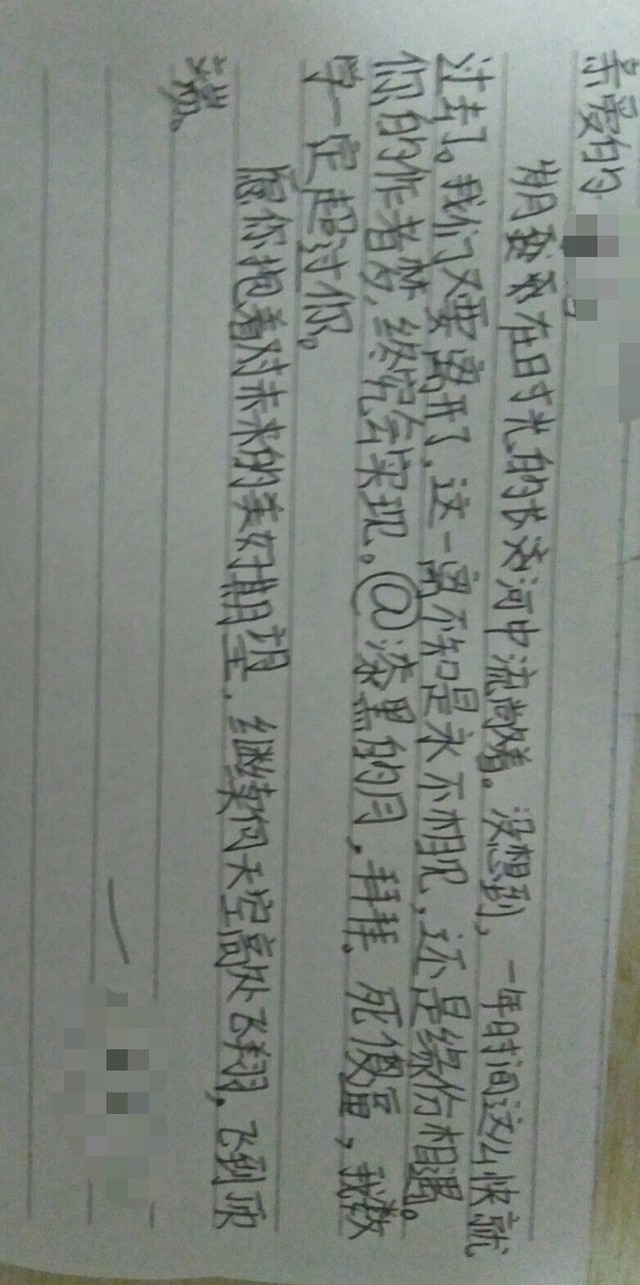 亲爱的
期盼在时光的长河中流淌着。没想到,一年时间这么快就
过去了。我们又要离开了,这一离不知是永不相见,还是缘份相遇。
你的作者梦,终究会实现。@漆黑的月,拜拜。死傻逼,我数
学一定超过你。
愿你抱着对未来的美好期望,继续向天空高处飞翔,飞到顶
端。